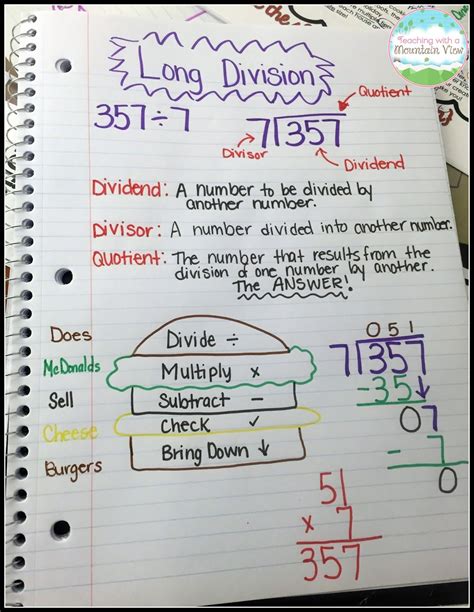 Teaching with a
Mountain View
Long Division
357÷7
Quotient
7)357
Divisor
Dividend
Dividend: A number to be divided by
another number.
Divisor: A number divided into another number.
Quotient: The number that results from the
division of one number by another.
The ANSWER!
Does
McDonalds
Sell
Cheese
Burgers
Divide ÷
Multiply x
Subtract −
Check ✓
Bring Down ↓
051
7)357
-35↓
07
-7
0
51
x 7
357